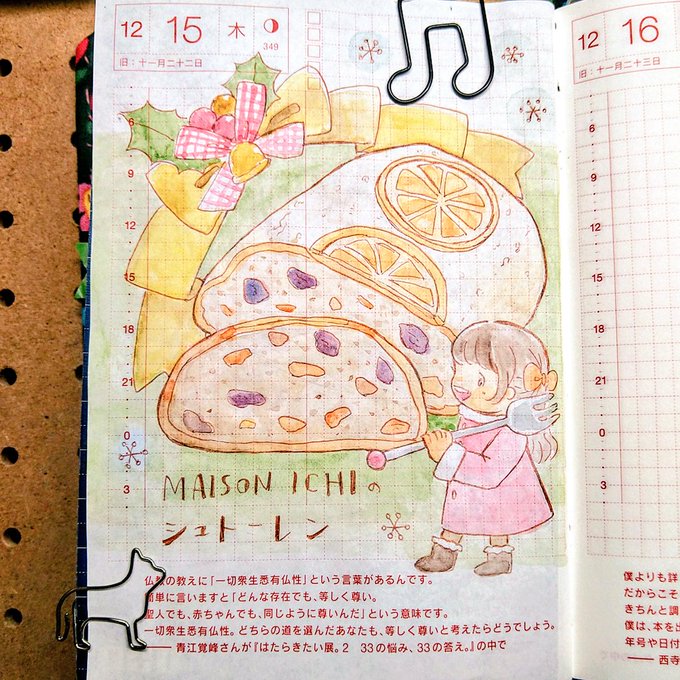 12 15 木 349
旧：十一月二十二日
12 16
旧：十一月二十三日
6
9
12
15
18
21
0
3
MAISON ICHIの
シュトーレン
仏教の教えに「一切衆生悉有仏性」という言葉があるんです。
簡単に言いますと、「どんな存在でも、等しく尊い。
聖人でも、赤ちゃんでも、同じように尊いんだ」という意味です。
一切衆生悉有仏性。どちらの道を選んだあなたも、等しく尊いと考えたらどうでしょう。
── 青江覚峰さんが『はたらきたい展。2　33の悩み、33の答え。』の中で
6
9
12
15
18
21
0
3
僕よりも詳
だからこそ
きちんと調
僕は、本を出
年号や日付
── 西寺